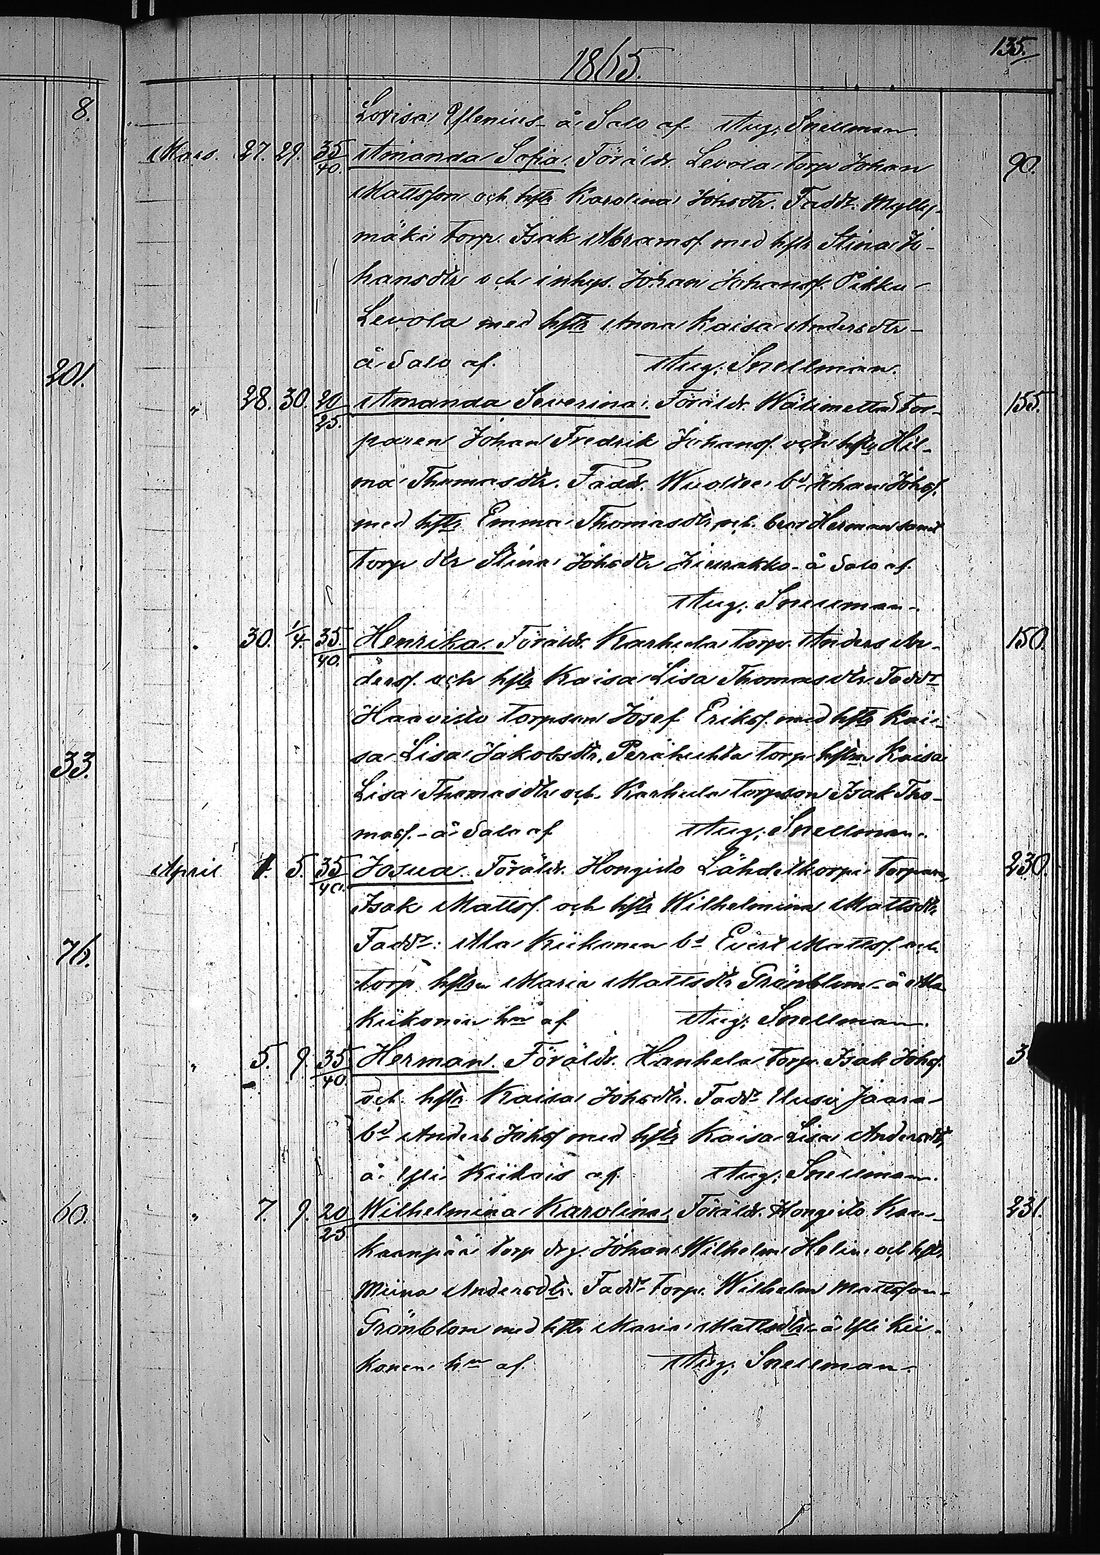 135.
1865.
8.
Lovisa Ylenius å Salo af Aug. Snellman
Mars. 27. 29. 35/40. Amanda Sofia. Föräldr. Levola torp. Johan 90.
Mattsson och hstr Karolina Johsdtr. Faddr. Mylly-
mäki torp. Isak Abramss. med hstr Stina Jo-
hansdtr och inhys. Johan Johanss. Pikku
Levola med hstr Anna Kaisa Andersdtr
å Salo af. Aug. Snellman.
201.
" 28. 30. 20/25. Amanda Severina. Föräldr. Wälimetta tor- 155.
paren Johan Fredrik Johanss. och hstr Hil-
ma Thomasdtr. Fadd. bd. Johan Johss.
med hstr Emma Thomasdtr och bror Herman samt
torp. dtr Stina Johsdtr å Salo af.
Aug. Snellman
" 30. 1/4. 35/40. Henrika. Föräldr. Karhula torp. Anders An- 150.
derss. och hstr Kaisa Lisa Thomasdtr. Faddr
Haavisto torpson Josef Erikss. med hstr Kai-
sa Lisa Jakobsdtr, Perähuhta torp. hstrn Kaisa
33.
Lisa Thomasdtr och Karhula torpson Isak Tho-
mass. å Salo af Aug. Snellman.
April 1. 5. 35/40. Josua. Föräldr. Hongisto Lähdekorpi torparn 230.
Isak Mattss. och hstr Wilhelmina Mattsdtr
Faddr: Ala Kiikonen bd. Evert Mattss. och
76.
torp. hstrn Maria Mattsdtr Grönblom å Ala
Kiikonen hmn af Aug. Snellman.
" 5. 9. 35/40. Herman. Föräldr. Hanhela torp. Isak Johss. 3
och hstr Kaisa Johsdtr. Faddr Uusi Jaara
bd Anders Johss med hstr Kaisa Lisa Andersdtr
å Yli Kiikois af. Aug. Snellman.
60.
" 7. 9. 20/25 Wilhelmina Karolina. Föräldr. Hongisto Kan- 231.
kaanpää torp. drg. Johan Wilhelm Helin och hstr
Miina Andersdtr. Faddr torp. Wilhelm Mattsson
Grönblom med hstr Maria Mattsdtr å Yli Kii-
konen hmn af. Aug. Snellman.